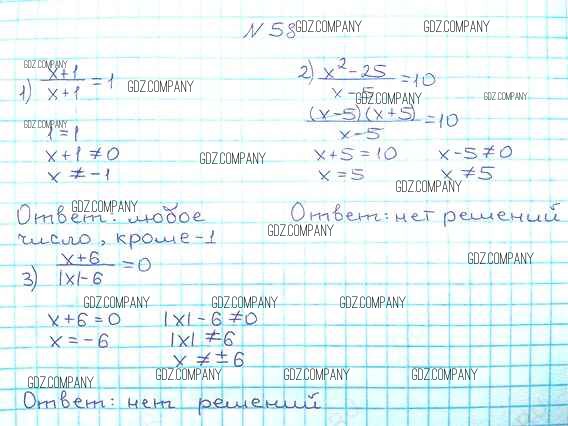 N 58
GDZ.COMPANY GDZ.COMPANY
GDZ.COMPANY
1) x+1/x+1 = 1
GDZ.COMPANY
2) x²-25/x-5 = 10
GDZ.COMPANY GDZ.COMPANY
GDZ.COMPANY
1=1
(x-5)(x+5)/x-5 = 10
x+1≠0
GDZ.COMPANY
x+5=10 x-5≠0
x≠-1
x=5 x≠5
GDZ.COMPANY
GDZ.COMPANY
Ответ: любое
число, кроме -1
Ответ: нет решений
GDZ.COMPANY
3) x+6/|x|-6 = 0
GDZ.COMPANY
GDZ.COMPANY GDZ.COMPANY GDZ.COMPANY
x+6=0 |x|-6≠0
x=-6 |x|≠6
x≠±6
GDZ.COMPANY GDZ.COMPANY GDZ.COMPANY GDZ.COMPANY
Ответ: нет решений